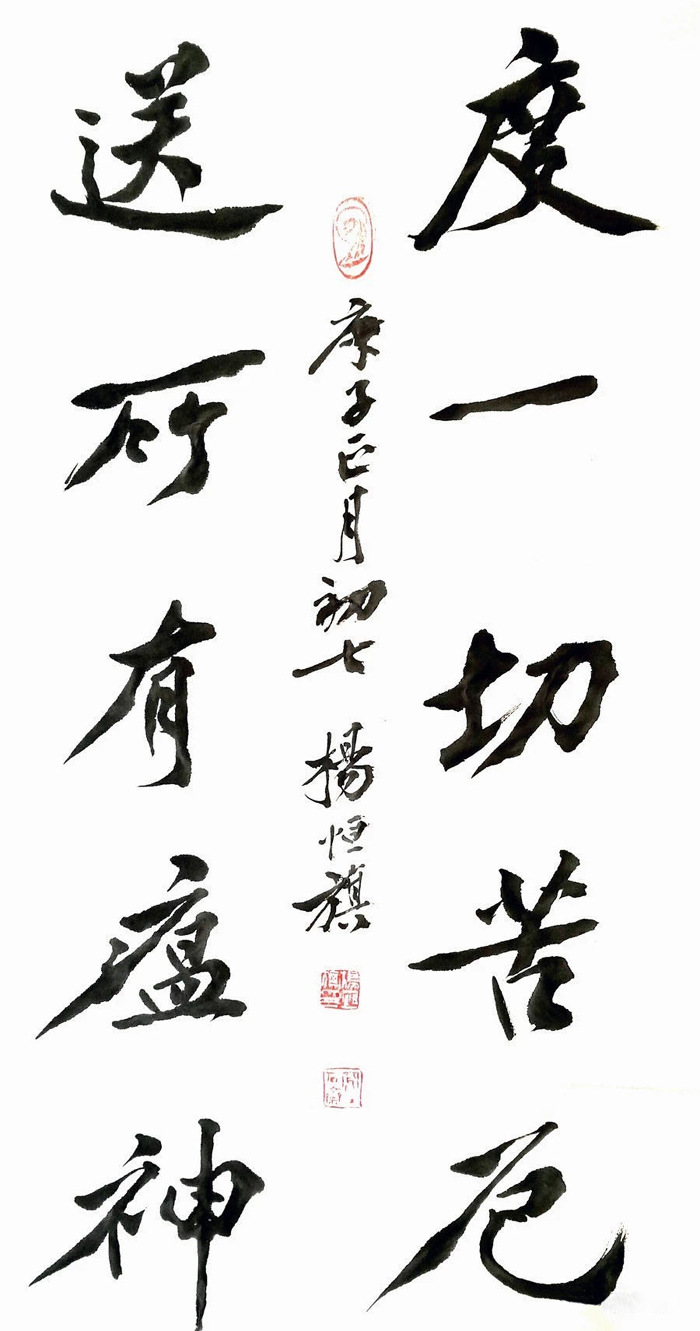 度一切苦厄
庚子正月初七 楊恒旗
送所有瘟神